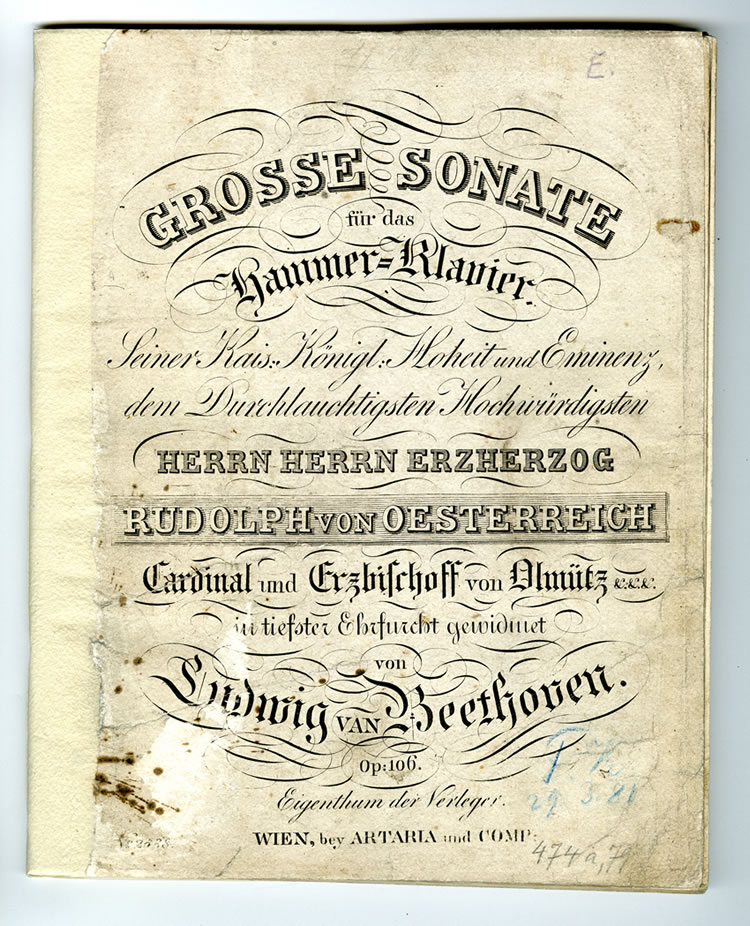 E.
GROSSE SONATE
für das
Hammer=Klavier.
Seiner Kais: Königl: Hoheit und Eminenz,
dem Durchlauchtigsten Hochwürdigsten
HERRN HERRN ERZHERZOG
RUDOLPH VON OESTERREICH
Cardinal und Erzbischoff von Olmütz &.&.&.
in tiefster Ehrfurcht gewidmet
von
Ludwig VAN Beethoven.
Op: 106.
Eigenthum der Verleger.
29 3.81
WIEN, bey ARTARIA und COMP:
474a,79